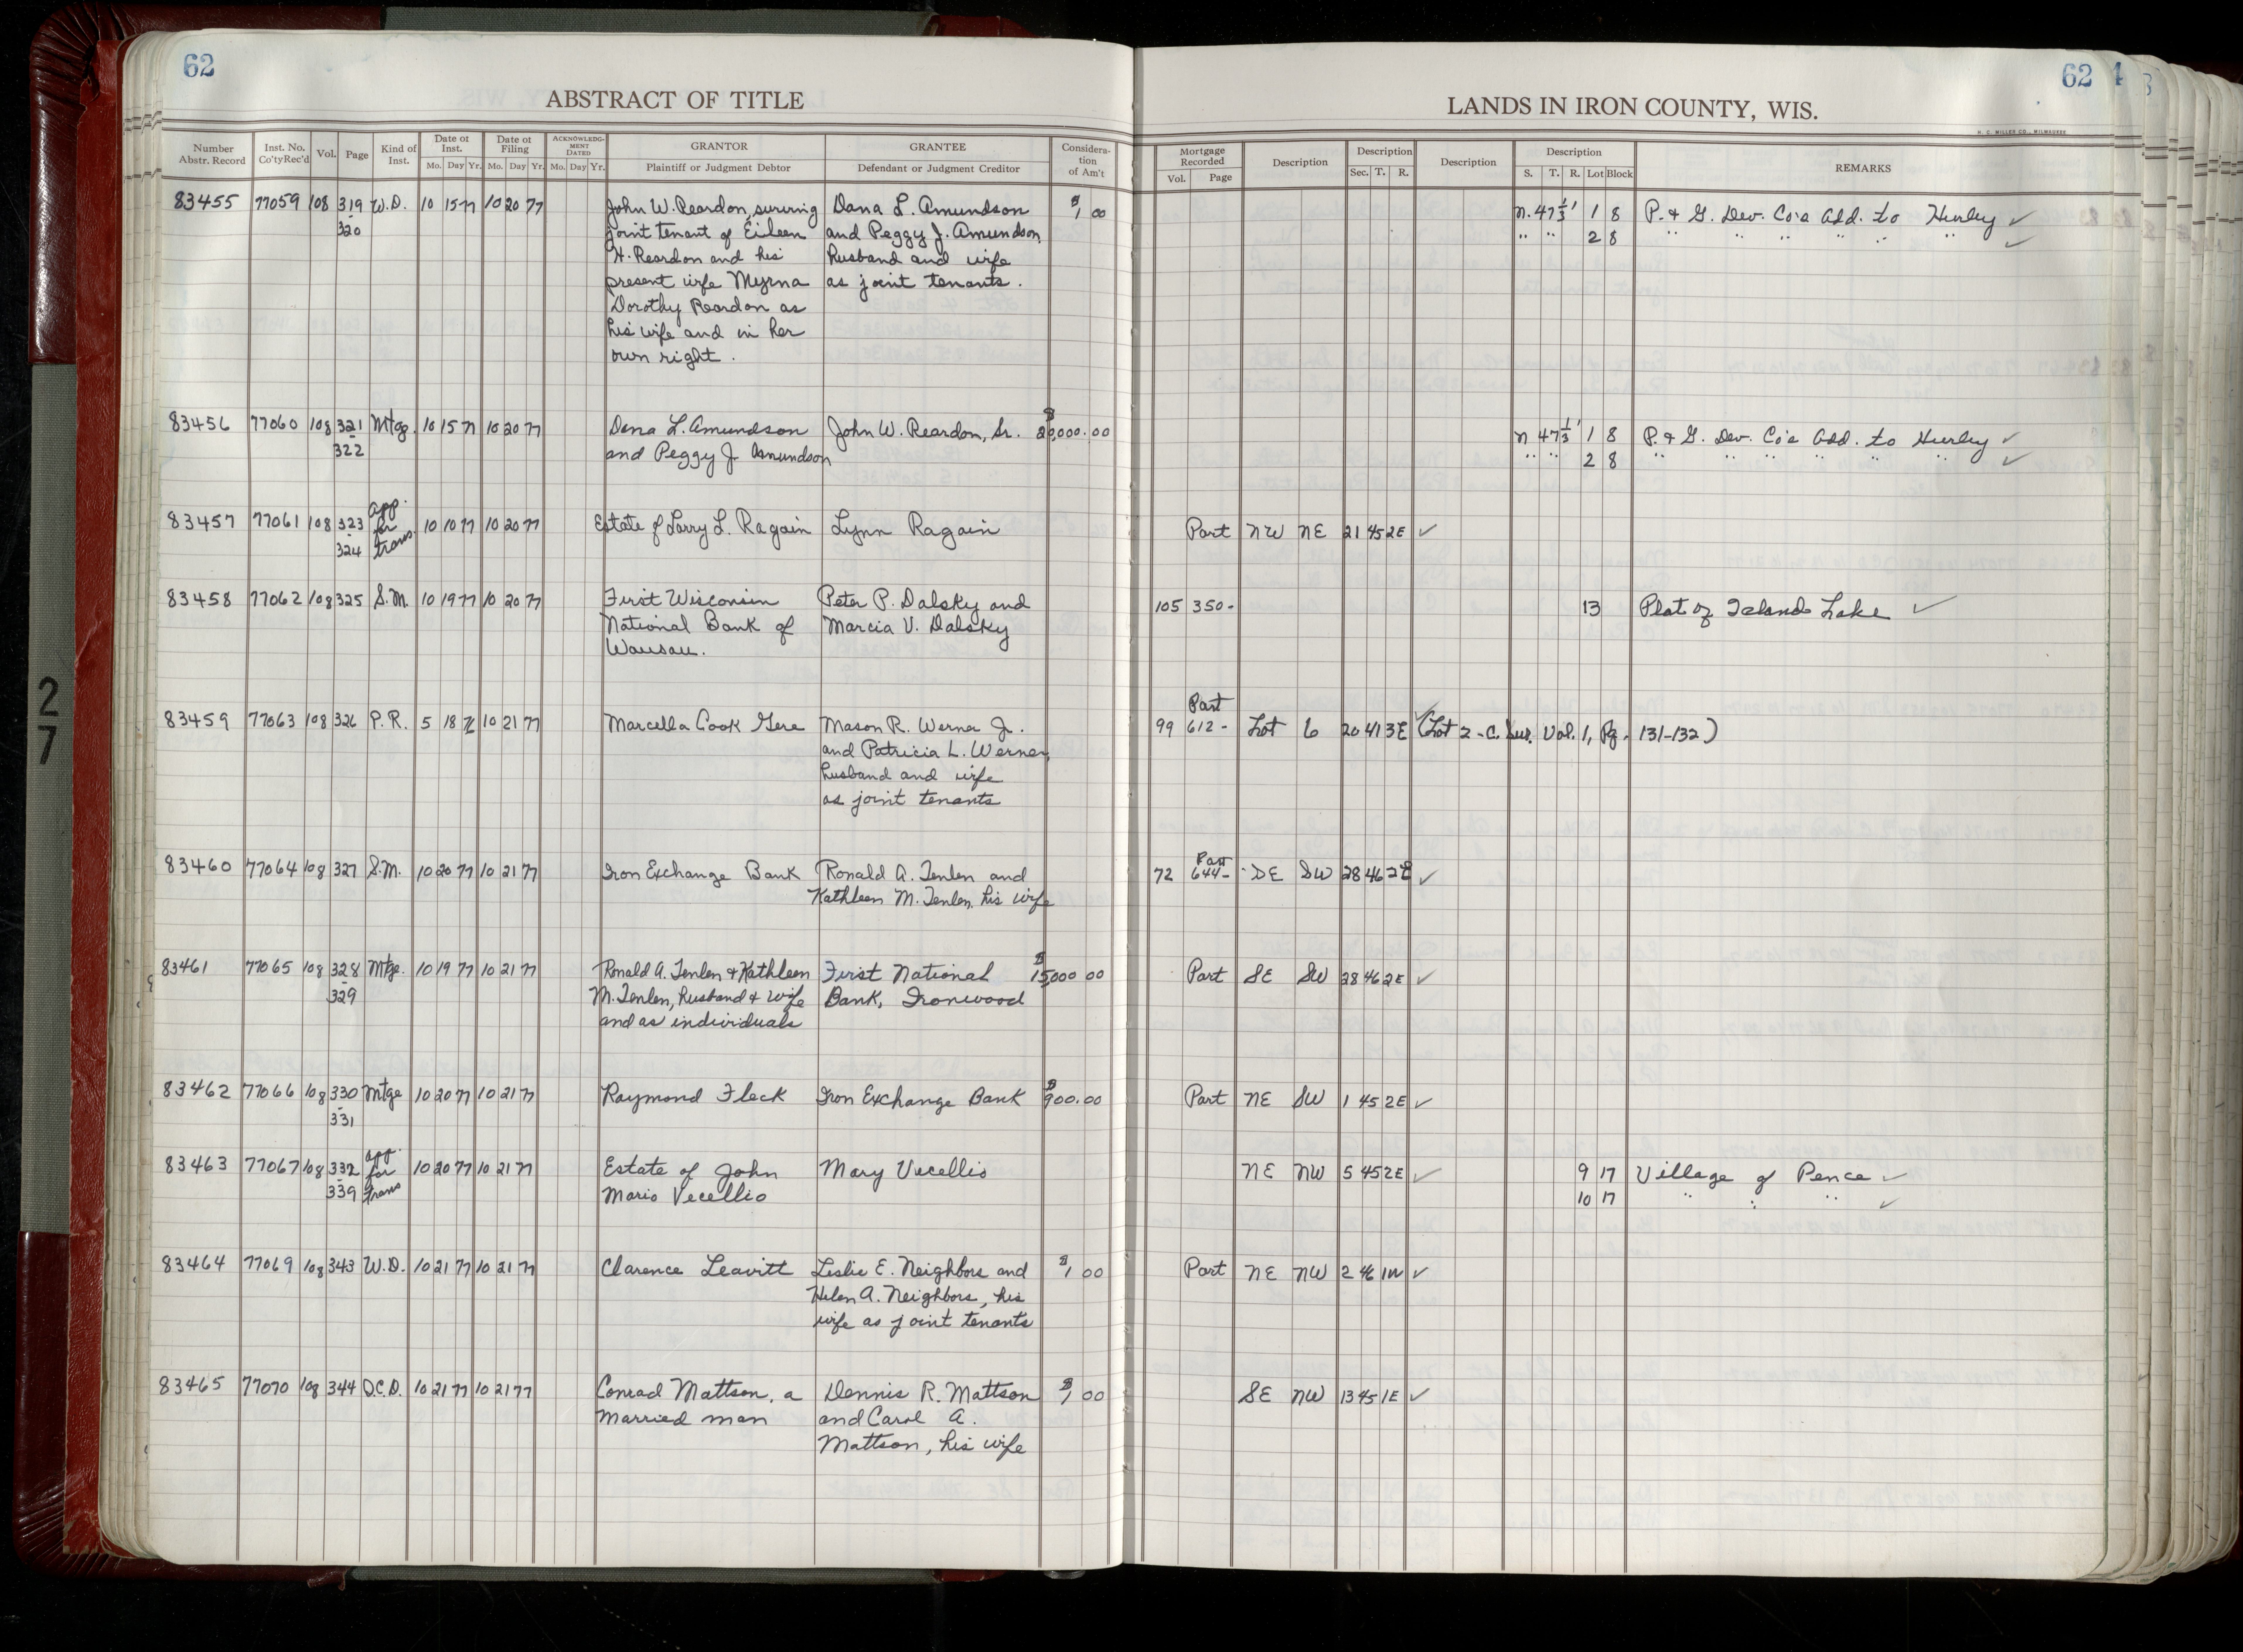 62
ABSTRACT OF TITLE
Number Abstr. Record Inst. No. Co'ty Rec'd Vol. Page Kind of Inst. Date of Inst. Mo. Day Yr. Date of Filing Mo. Day Yr. ACKNOWLEDGMENT DATED Mo. Day Yr. GRANTOR Plaintiff or Judgment Debtor GRANTEE Defendant or Judgment Creditor Consideration of Am't
62
LANDS IN IRON COUNTY, WIS.
H. C. MILLER CO., MILWAUKEE
Mortgage Recorded Vol. Page Description Description Sec. T. R. Description Description S. T. R. Lot Block REMARKS
83455 77059 108 319 W.D. 10 15 77 10 20 77 John W. Reardon, surving Dana L. Amundson $1 00 N. 47 1/3' 1 8 P. & G. Dev. Co's Add. to Hurley ✓
- 320 joint tenant of Eileen and Peggy J. Amundson, " " 2 8 " " " " " " ✓
H. Reardon and his husband and wife
present wife Myrna as joint tenants.
Dorothy Reardon as
his wife and in her
own right.
83456 77060 108 321 Mtge. 10 15 77 10 20 77 Dana L. Amundson John W. Reardon, Sr. $20,000.00 N 47 1/3' 1 8 P. & G. Dev. Co's Add. to Hurley ✓
- 322 and Peggy J. Amundson " " 2 8 " " " " " " ✓
83457 77061 108 323 - 324 App. for trans. 10 10 77 10 20 77 Estate of Larry L. Ragain Lynn Ragain Part NW NE 21 45 2E ✓
83458 77062 108 325 S.M. 10 19 77 10 20 77 First Wisconsin Peter P. Dalsky and 105 350- 13 Plat of Island Lake ✓
National Bank of Marcia V. Dalsky
Wausau.
83459 77063 108 326 P.R. 5 18 76 10 21 77 Marcella Cook Gere Mason R. Werner Jr. 99 Part 612- Lot 6 20 41 3E ✓ (Lot 2 - C. Sur. Vol. 1, Pg. 131-132)
and Patricia L. Werner,
husband and wife
as joint tenants
83460 77064 108 327 S.M. 10 20 77 10 21 77 Iron Exchange Bank Ronald A. Tenlen and 72 Part 644- SE SW 28 46 2E ✓
Kathleen M. Tenlen, his wife
83461 77065 108 328 Mtge. 10 19 77 10 21 77 Ronald A. Tenlen & Kathleen First National $15,000 00 Part SE SW 28 46 2E ✓
- 329 M. Tenlen, husband & wife Bank, Ironwood
and as individuals
83462 77066 108 330 Mtge 10 20 77 10 21 77 Raymond Fleck Iron Exchange Bank $900.00 Part NE SW 1 45 2E ✓
- 331
83463 77067 108 332 App. for trans 10 20 77 10 21 77 Estate of John Mary Vecellio NE NW 5 45 2E ✓ 9 17 Village of Pence ✓
- 339 Mario Vecellio 10 17 " " " ✓
83464 77069 108 343 W.D. 10 21 77 10 21 77 Clarence Leavitt Leslie E. Neighbors and $1 00 Part NE NW 2 46 1W ✓
Helen A. Neighbors, his
wife as joint tenants
83465 77070 108 344 Q.C.D. 10 21 77 10 21 77 Conrad Mattson, a Dennis R. Mattson $1 00 SE NW 13 45 1E ✓
married man and Carol A.
Mattson, his wife
27